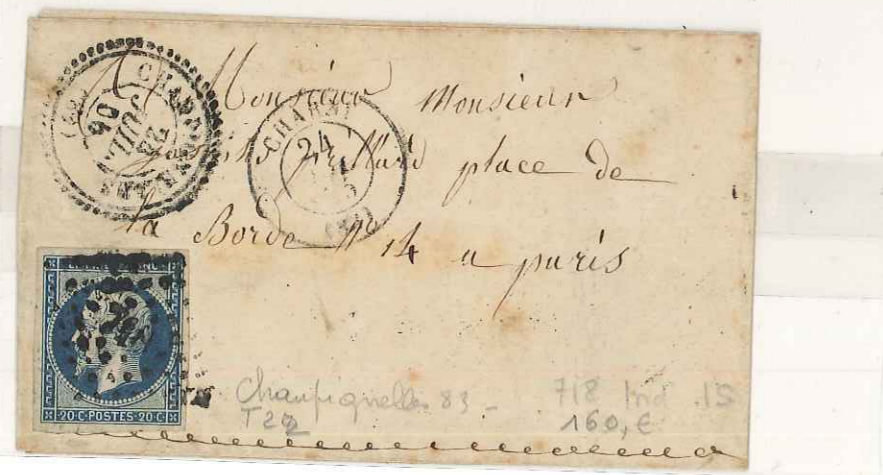 CHAMPIGNELLES
28
JUIL.
CHARNY
24
Monsieur Monsieur
place de
la Borde n° 14 a paris
EMPIRE FRANC
20·C·POSTES·20·C
Champignelles 83 -
T22
718 Ind 15
160,€